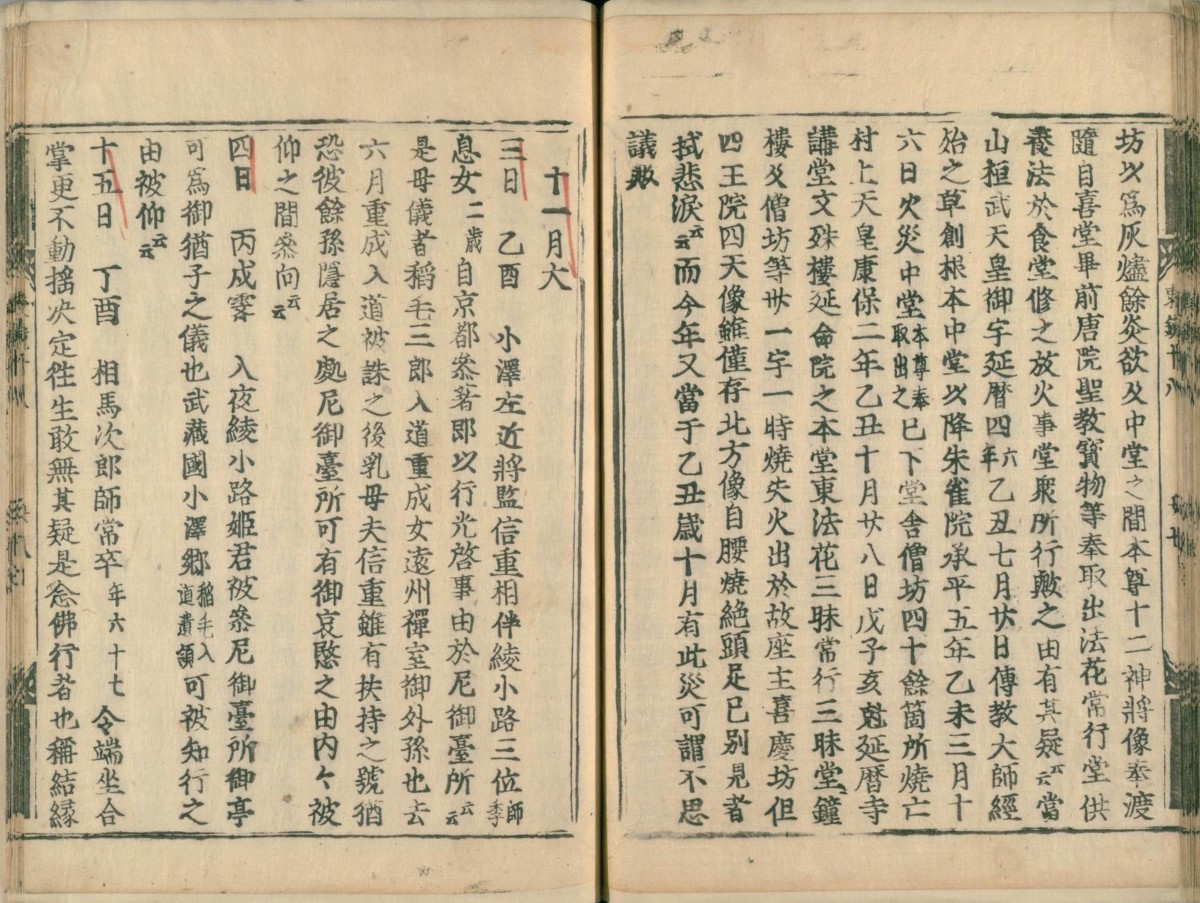 坊以爲灰燼餘炎欲及中堂之間本尊十二神將像奉渡
隨自喜堂畢前唐院聖教寳物等奉取出法花常行堂供
養法於食堂修之放火事堂衆所行歟之由有其疑云云當
山桓武天皇御宇延暦四年六乙丑七月廿日傳教大師經
始之草創根本中堂以降朱雀院承平五年乙未三月十
六日火災中堂本尊奉取出之已下堂舍僧坊四十餘箇所燒亡
村上天皇康保二年乙丑十月廿八日戊子亥尅延暦寺
講堂文殊樓延命院之本堂東法花三昧常行三昧堂鐘
樓及僧坊等卅一宇一時燒失火出於故座主喜慶坊但
四王院四天像雖僅存北方像自腰燒絶頭足已別見者
拭悲涙云云而今年又當于乙丑歳十月有此災可謂不思
議歟
十一月大
三日　乙酉　小澤左近將監信重相伴綾小路三位師季
息女二歳自京都參著即以行光啓事由於尼御臺所云云
是母儀者稻毛三郎入道重成女遠州禪室御外孫也去
六月重成入道被誅之後乳母夫信重雖有扶持之號猶
恐彼餘孫隱居之處尼御臺所可有御哀愍之由内々被
仰之間參向云云
四日　丙戌霽　入夜綾小路姫君被參尼御臺所御亭
可爲御猶子之儀也武藏國小澤郷稻毛入道遺領可被知行之
由被仰云云
十五日　丁酉　相馬次郎師常卒年六十七令端坐合
掌更不動揺决定徃生敢無其疑是念佛行者也稱結縁
東鑑十八